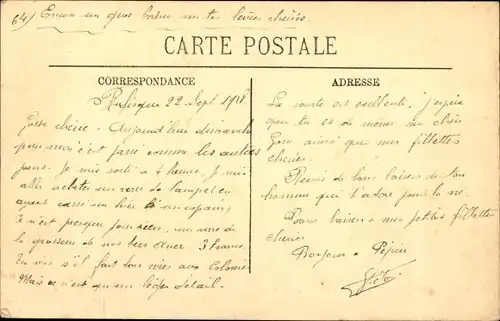 64) Encore un gros baiser sur tes lèvres chéries.
CARTE POSTALE
CORRESPONDANCE
Rufisque 22 Sept 1918
Gosse chérie - Aujourd'hui dimanche
pour moi c'est passé comme les autres
jours. Je suis sorti à 4 heures. Je suis
allé acheter un verre de lampe en
ayant cassé un hier
Ce n'est presque pour rien, un verre de
la grosseur de nos becs 3 francs.
Tu vois s'il fait bon vivre aux Colonies
Mais ce n'est qu'un léger détail.
ADRESSE
La santé est excellente, j'espère
que tu es de même ma chère
Goss ainsi que mes fillettes
chéries.
Reçois de bons baisers de ton
homme qui t'adore pour la vie.
Bons baisers à mes petites fillettes
chéries
Bonjour à Pépée